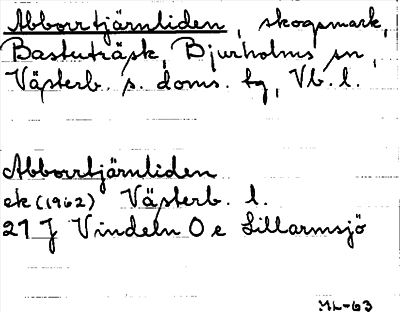 Abborrtjärnliden, skogsmark,
Bastuträsk, Bjurholms sn,
Västerb. s. doms. tg, Vb. l.
Abborrtjärnliden
ek (1962) Västerb. l.
21 J Vindeln O e Lillarmsjö
ML-63